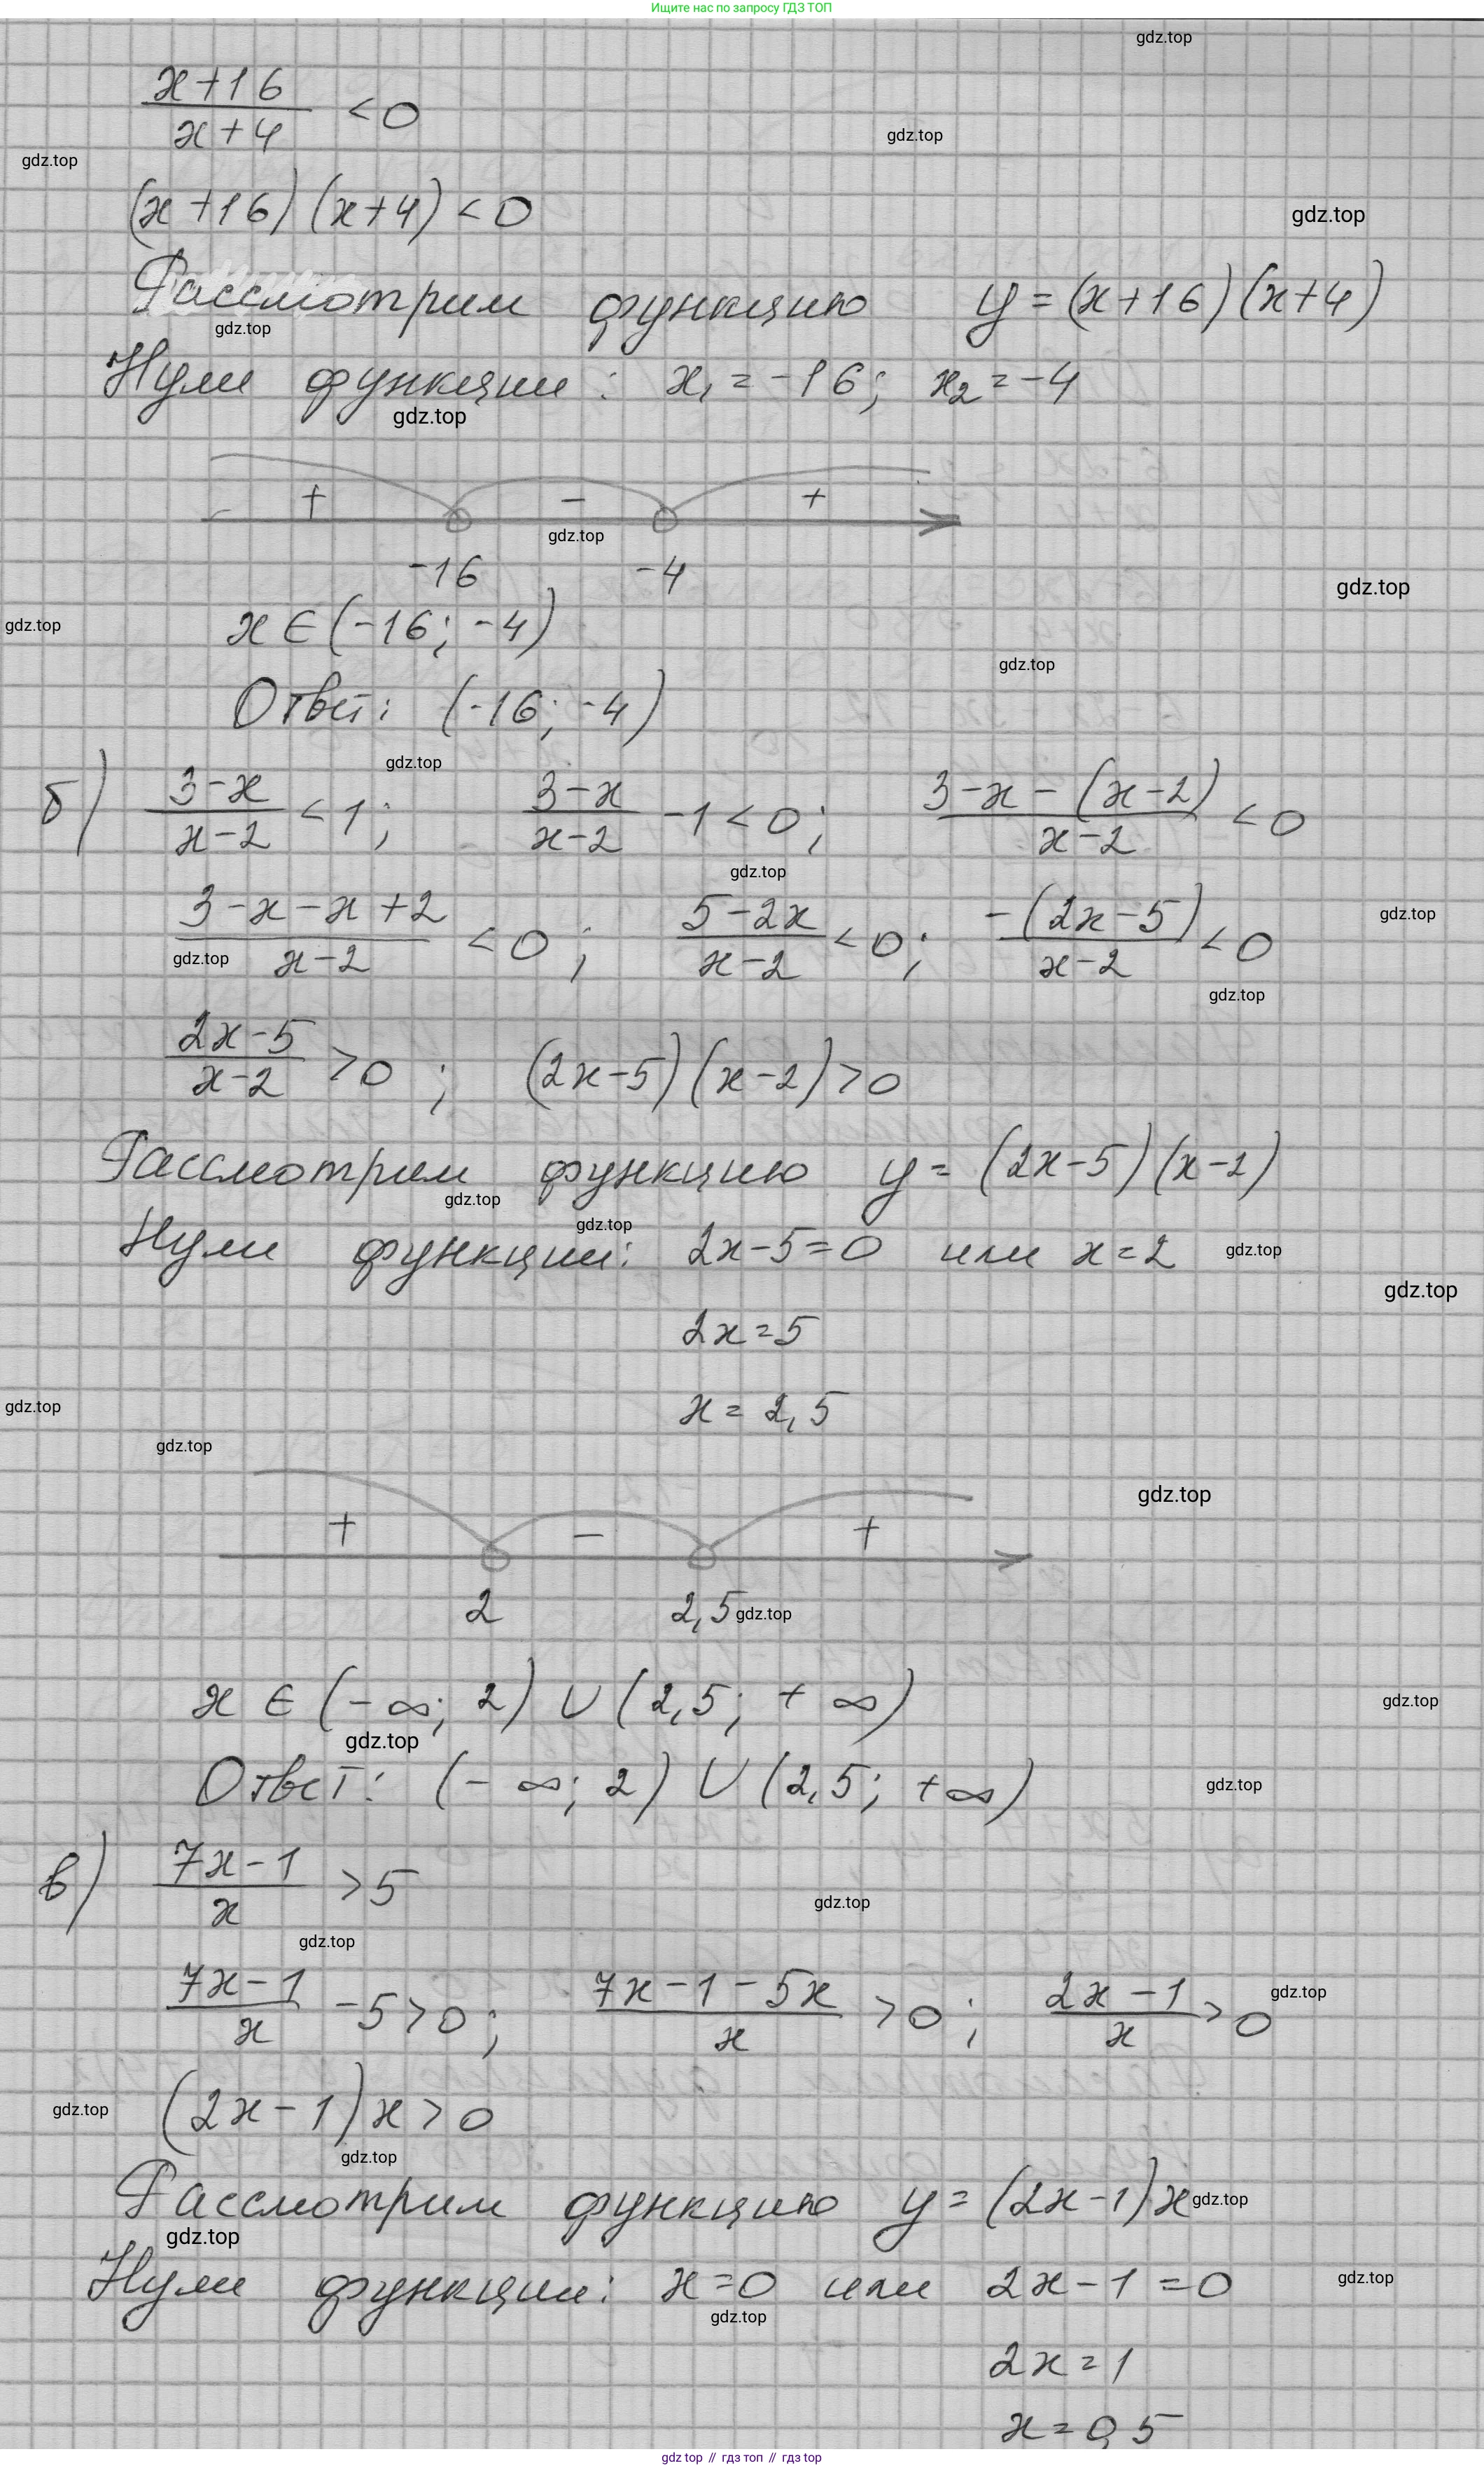 Ищите нас по запросу ГДЗ ТОП
gdz.top
(x+16)/(x+4) < 0
gdz.top
gdz.top
(x+16)(x+4) < 0
gdz.top
Рассмотрим функцию y = (x+16)(x+4)
gdz.top
Нули функции: x₁ = -16; x₂ = -4
gdz.top
+ − +
gdz.top
-16 -4
gdz.top
x ∈ (-16; -4)
gdz.top
gdz.top
Ответ: (-16; -4)
gdz.top
б) (3-x)/(x-2) < 1; (3-x)/(x-2) - 1 < 0; (3-x-(x-2))/(x-2) < 0
gdz.top
(3-x-x+2)/(x-2) < 0; (5-2x)/(x-2) < 0; -(2x-5)/(x-2) < 0
gdz.top
gdz.top
gdz.top
(2x-5)/(x-2) > 0; (2x-5)(x-2) > 0
Рассмотрим функцию y = (2x-5)(x-2)
gdz.top
gdz.top
Нули функции: 2x-5=0 или x=2
gdz.top
gdz.top
2x=5
x = 2,5
gdz.top
gdz.top
gdz.top
+ − +
2 2,5
gdz.top
x ∈ (-∞; 2) ∪ (2,5; +∞)
gdz.top
gdz.top
Ответ: (-∞; 2) ∪ (2,5; +∞)
gdz.top
в) (7x-1)/x > 5
gdz.top
gdz.top
(7x-1)/x - 5 > 0; (7x-1-5x)/x > 0; (2x-1)/x > 0
gdz.top
(2x-1)x > 0
gdz.top
gdz.top
Рассмотрим функцию y = (2x-1)x
gdz.top
gdz.top
Нули функции: x=0 или 2x-1=0
gdz.top
gdz.top
2x=1
x=0,5
gdz top // гдз топ // гдз top